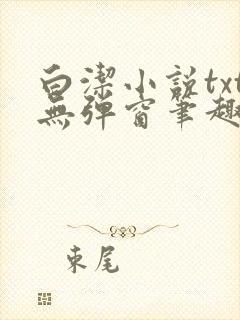 白潔小説txt
無彈窗筆趣
束尾